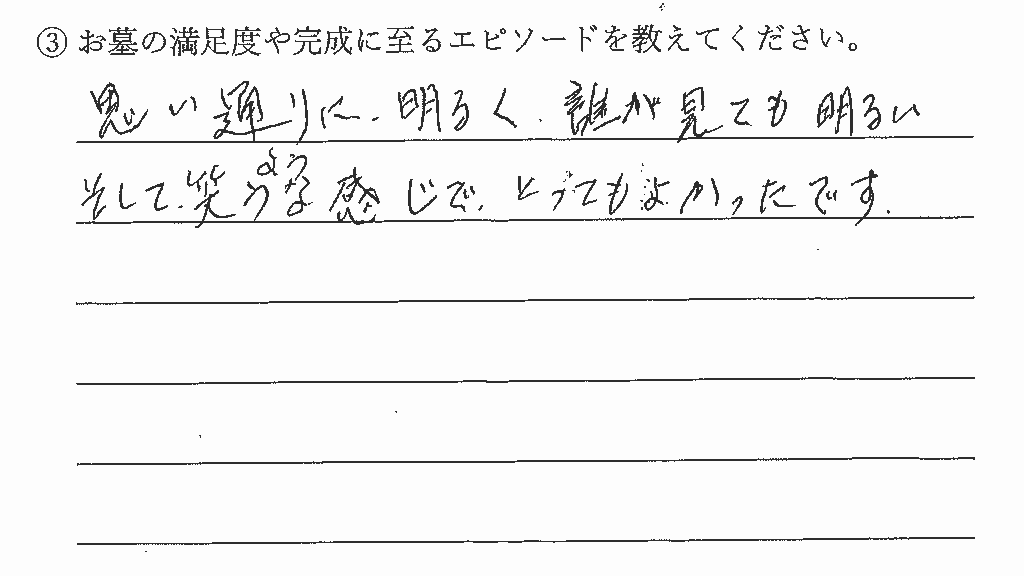 ③ お墓の満足度や完成に至るエピソードを教えてください。
思い通りに、明るく、誰が見ても明るい
そして、笑うような感じで、とってもよかったです。